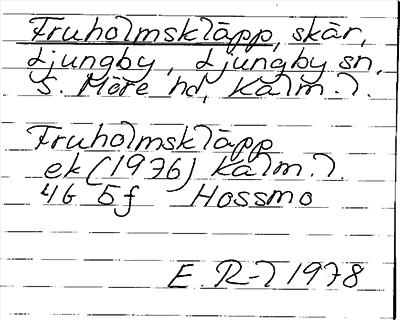 Fruholmskläpp, skär,
Ljungby, Ljungby sn.
S. Möre hd, Kalm. l.
Fruholmskläpp
ek (1976) Kalm. l.
4G 5f Hossmo
E. R-l 1978